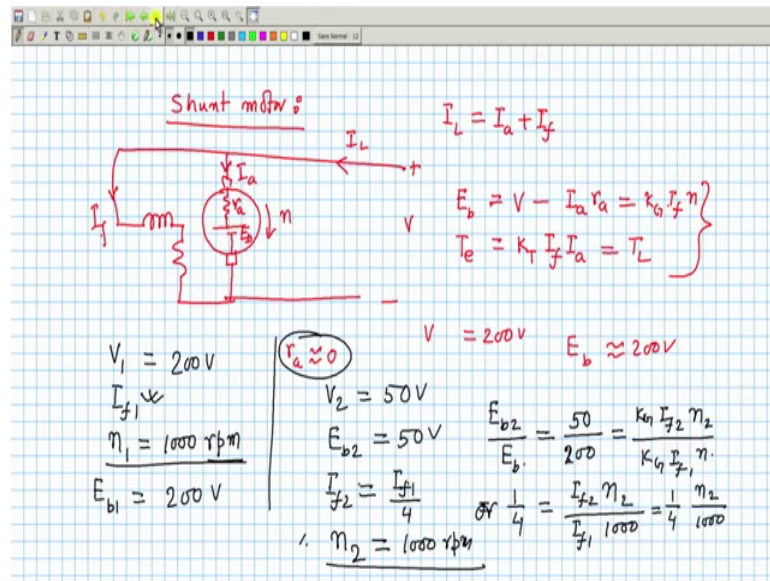 Sans Normal 12
Shunt motor :
I_L = I_a + I_f
I_L
+
I_a
I_f
r_a
E_b
n
V
E_b = V - I_a r_a = K_G I_f n
T_e = K_T I_f I_a = T_L
-
V = 200V
E_b ≈ 200V
V_1 = 200V
I_f1
n_1 = 1000 rpm
E_b1 = 200 V
r_a ≈ 0
V_2 = 50V
E_b2 = 50V
I_f2 = I_f1/4
∴ n_2 = 1000 rpm
E_b2/E_b. = 50/200 = K_G I_f2 n_2/K_G I_f1 n.
or 1/4 = I_f2 n_2/I_f1 1000 = 1/4 n_2/1000